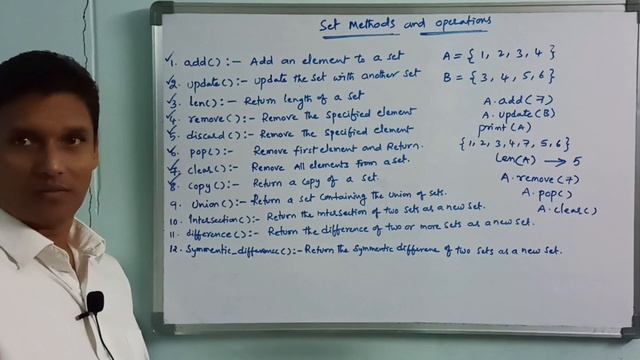 Set Methods and operations
✓1. add() :- Add an element to a set
✓2. update() :- Update the set with another set
✓3. len() :- Return length of a set
✓4. remove() :- Remove the specified element
✓5. discard() :- Remove the specified element
✓6. pop() :- Remove first element and Return.
✓7. clear() :- Remove All elements from a set.
✓8. copy() :- Return a copy of a set.
9. Union() :- Return a set containing the union of sets.
10. Intersection() :- Return the intersection of two sets as a new set.
11. difference() :- Return the difference of two or more sets as a new set.
12. Symmentic_difference() :- Return the Symmentic difference of two sets as a new set.
A = { 1, 2, 3, 4 }
B = { 3, 4, 5, 6 }
A.add(7)
A.update(B)
print(A)
{1, 2, 3, 4, 7, 5, 6}
len(A) → 5
A.remove(7)
A.pop()
A.clear()